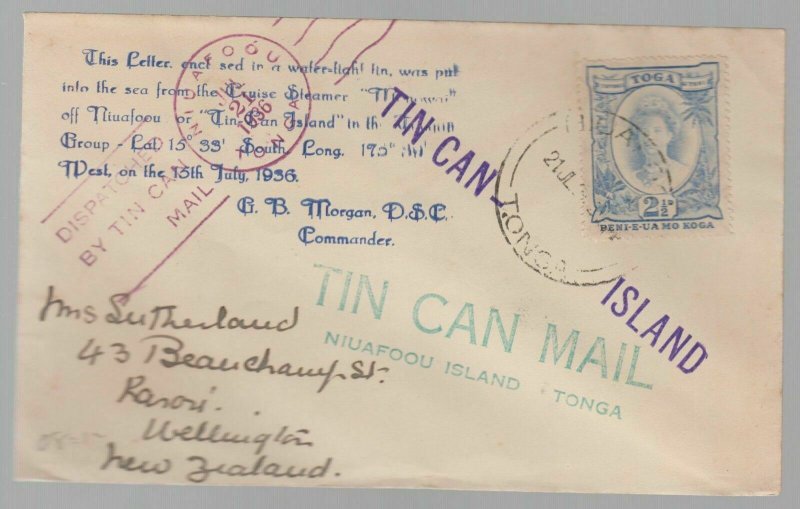 This Letter, encl sed in a water-tight tin, was put
into the sea from the Cruise Steamer
off Niuafoou or "Tin Can Island" in the
Group - Lat 15° 33' South, Long. 175°
West, on the 15th July, 1936.
G. B. Morgan, D.S.C.
Commander.
NIUAFOOU
21
1936
TONGA
DISPATCHED
BY TIN CAN
MAIL
TIN CAN
ISLAND
TOGA
2½D
PENI-E-UA MO KOGA
21 JL
TONGA
TIN CAN MAIL
NIUAFOOU ISLAND TONGA
Mrs Sutherland
43 Beauchamp St.
Karori.
Wellington
New Zealand.